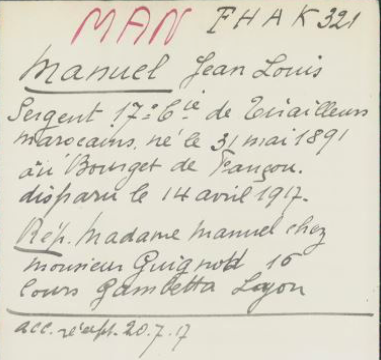 MAN FHAK 321
Manuel Jean Louis
Sergent 17e Cie de Tirailleurs
marocains, né le 31 mai 1891
au Bourget de
disparu le 14 avril 1917.
Rép. Madame Manuel chez
Monsieur Guignod 16
Cours Gambetta Lyon
acc. récept. 20.7.17